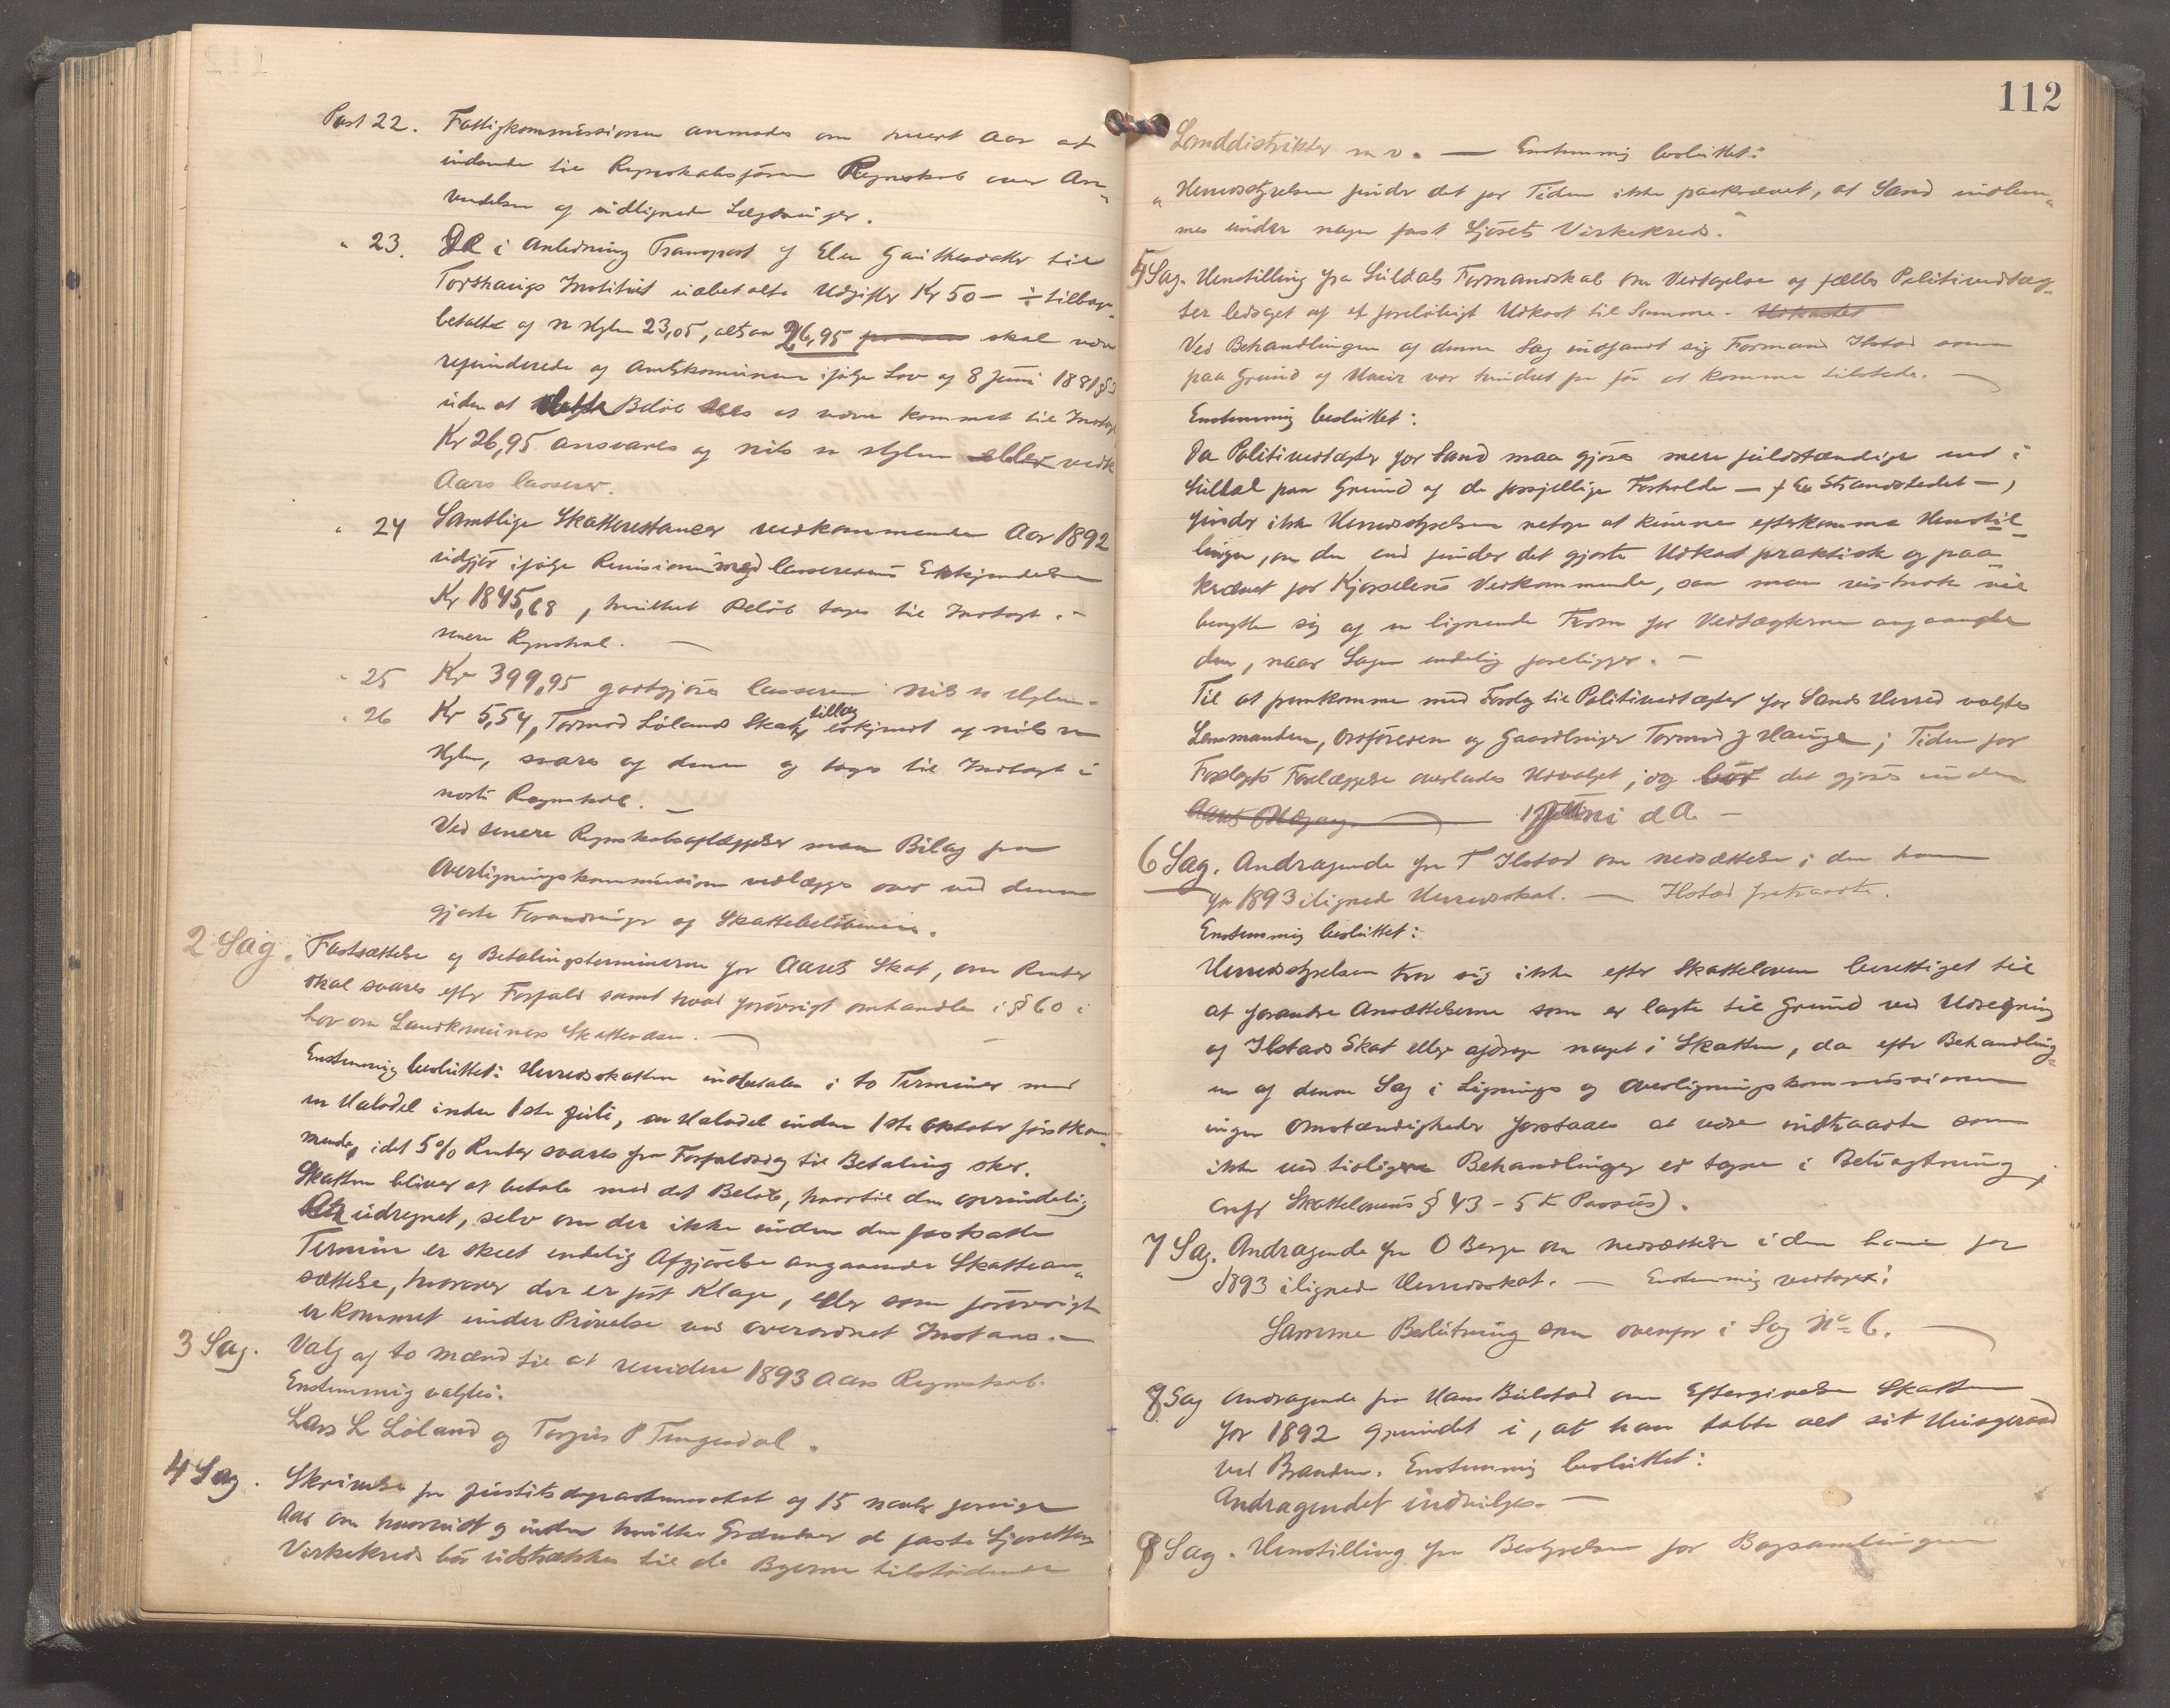 Post 22. Fattigkommissionen anmodes om hvert Aar at
indsende til Regnskabsføreren Regnskab over An-
vendelsen af udlignede Lægdsuger.
" 23. De i Anledning Transport af Elen Gauthesdatter til
Torshaugs Institut udbetalte Udgifter Kr 50 – ÷ tilbage-
betalte af N Hylen 23,05, altsaa 26,95 skal være
refunderede af Amtskommunen ifølge Lov af 8 Juni 1881 §3
uden at dette Beløb sees at være kommet til Indtægt
Kr 26,95 ansvares af Nils N Hylen eller vedk
Aars Casserer.
" 24 Samtlige Skatterestancer vedkommende Aar 1892
udgjør ifølge Revisionen med Cassererens Erkjendelse
Kr 1845,68, hvilket Beløb tages til Indtægt i
senere Regnskab. —
" 25 Kr 399,95 godtgjøres Casserer Nils N Hylen –
" 26 Kr 5,54, Tormod Lølands Skattetillæg erkjendt af Nils N
Hylen, svares af denne og tages til Indtægt i
næste Regnskab. —
Ved senere Regnskabsaflæggelser maa Bilag fra
Overligningskommissionen vedlægges over ved denne
gjorte Forandringer af Skattebeløbene.
2 Sag. Fastsættelse af Betalingsterminerne for Aarets Skat, om Renter
skal svares efter Forfald samt hvad forøvrigt omhandles i § 60 i
Lov om Landkommuners Skattevæsen. —
Enstemmig besluttet: Herredsskatten indbetales i to Terminer med
en Halvdel inden 1ste Juli, en Halvdel inden 1ste Oktober førstkom-
mende, idet 5% Renter svares fra Forfaldsdag til Betaling sker.
Skatten bliver at betale med det Beløb, hvortil den oprindelig
er udregnet, selv om der ikke inden den fastsatte
Termin er skeet endelig Afgjørelse angaaende Skattean-
sættelse, hvorover der er ført Klage, eller som forøvrigt
er kommet under Prøvelse ved overordnet Instans. —
3 Sag. Valg af to Mænd til at revidere 1893 Aars Regnskab.
Enstemmig valgtes:
Lars L Løland og Torjus P Tengesdal.
4 Sag. Skrivelse fra Justitsdepartementet af 15 Novbr forrige
Aar om hvorvidt og inden hvilke Grændser de faste Skjøretters
Virkekreds bør udstrækkes til de Byerne tilstødende
112
Landdistrikter m v. — Enstemmig besluttet:
"Herredsstyrelsen finder det for Tiden ikke paakrævet, at Sand indlem-
mes under nogen fast Skjørets Virkekreds."
5 Sag. Henstilling fra Suldals Formandskab om Vedtagelse af fælles Politivedtæg-
ter ledsaget af et foreløbigt Udkast til Samme. Udkastet
Ved Behandlingen af denne Sag indfandt sig Formand Ilstad som
paa Grund af Uveir var hindret fra før at komme tilstede. —
Enstemmig besluttet:
Da Politivedtægter for Sand maa gjøres mere fuldstændige end i
Suldal paa Grund af de forskjellige Forholde — f Ex Strandstedet —,
finder ikke Herredsstyrelsen netop at kunne efterkomme Henstil-
lingen, om den end finder det gjorte Udkast praktisk og paa-
krævet for Kjørselens Vedkommende, saa man vistnok vil
benytte sig af en lignende Form for Vedtægterne angaaende
den, naar Sagen endelig foreligger. —
Til at fremkomme med Forslag til Politivedtægter for Sands Herred valgtes
Lensmanden, Ordføreren og Gaardbruger Tormod J Hauge; Tiden for
Forslagets Forelæggelse overlades Udvalget, og bør det gjøres inden
1 Juni d A. —
6 Sag. Andragende fra T Ilstad om nedsættelse i den ham
for 1893 ilignede Herredsskat. — Ilstad fratraadte.
Enstemmig besluttet:
Herredsstyrelsen tror sig ikke efter Skatteloven berettiget til
at forandre Ansættelserne som er lagte til Grund ved Udregning
af Ilstads Skat eller afdrage noget i Skatten, da efter Behandling-
en af denne Sag i Lignings og Overligningskommissionen
ingen Omstændigheder forstaaes at være indtraadte som
ikke ved tidligere Behandlinger er tagne i Betragtning,
(cnfr Skattelovens § 43 – 5te Passus).
7 Sag. Andragende fra O Berge om nedsættelse i den ham for
1893 ilignede Herredsskat. — Enstemmig vedtaget:
Samme Beslutning som ovenfor i Sag No 6. —
8 Sag Andragende fra Hans Bulstad om Eftergivelse Skatten
for 1892 grundet i, at han tabte alt sit Huisgeraad
ved Branden. Enstemmig besluttet:
Andragendet indvilges. —
9 Sag. Henstilling fra Bestyrelsen for Bogsamlingen